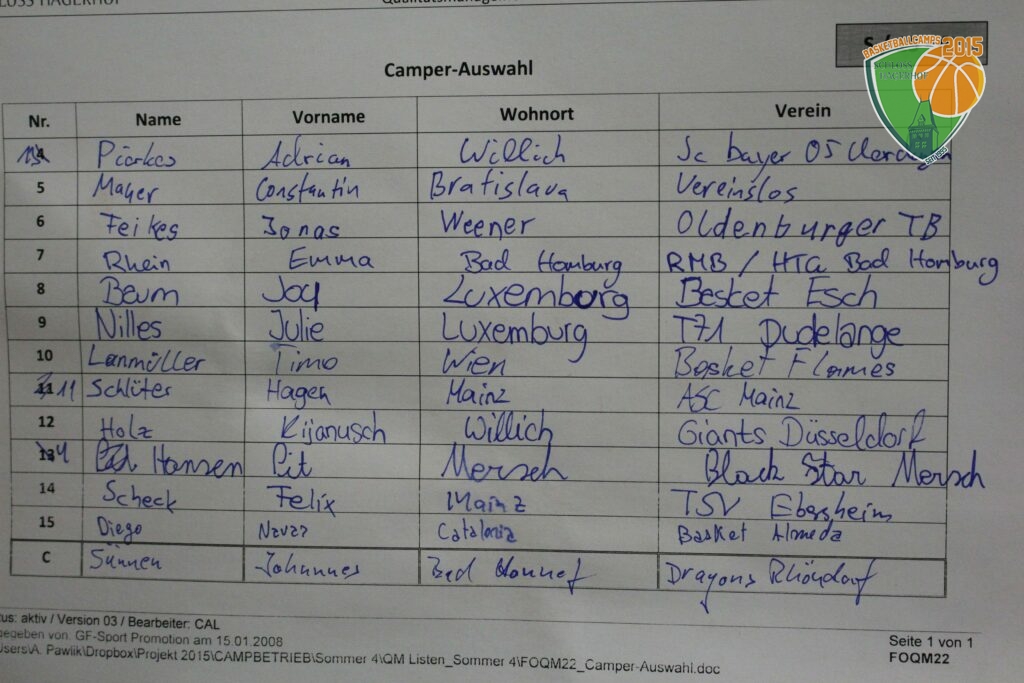 Camper-Auswahl
BASKETBALLCAMPS 2015
SCHLOSS HAGERHOF
Nr. Name Vorname Wohnort Verein
Adrian Willich Sc bayer 05
5 Mayer Constantin Bratislava Vereinslos
6 Feikes Jonas Weener Oldenburger TB
7 Rhein Emma Bad Homburg RMB / HTG Bad Homburg
8 Baum Joy Luxemburg Basket Esch
9 Nilles Julie Luxemburg T71 Dudelange
10 Lanmüller Timo Wien Basket Flames
11 Schlüter Hagen Mainz ASC Mainz
12 Holz Kijanusch Willich Giants Düsseldorf
Hansen Pit Mersch Black Star Mersch
14 Scheck Felix Mainz TSV Ebersheim
15 Diego Catalonia Basket Almeda
C Sünnen Johannes Bad Honnef Dragons Rhöndorf
tus: aktiv / Version 03 / Bearbeiter: CAL
gegeben von: GF-Sport Promotion am 15.01.2008
Users\A. Pawlik\Dropbox\Projekt 2015\CAMPBETRIEB\Sommer 4\QM Listen_Sommer 4\FOQM22_Camper-Auswahl.doc
Seite 1 von 1
FOQM22